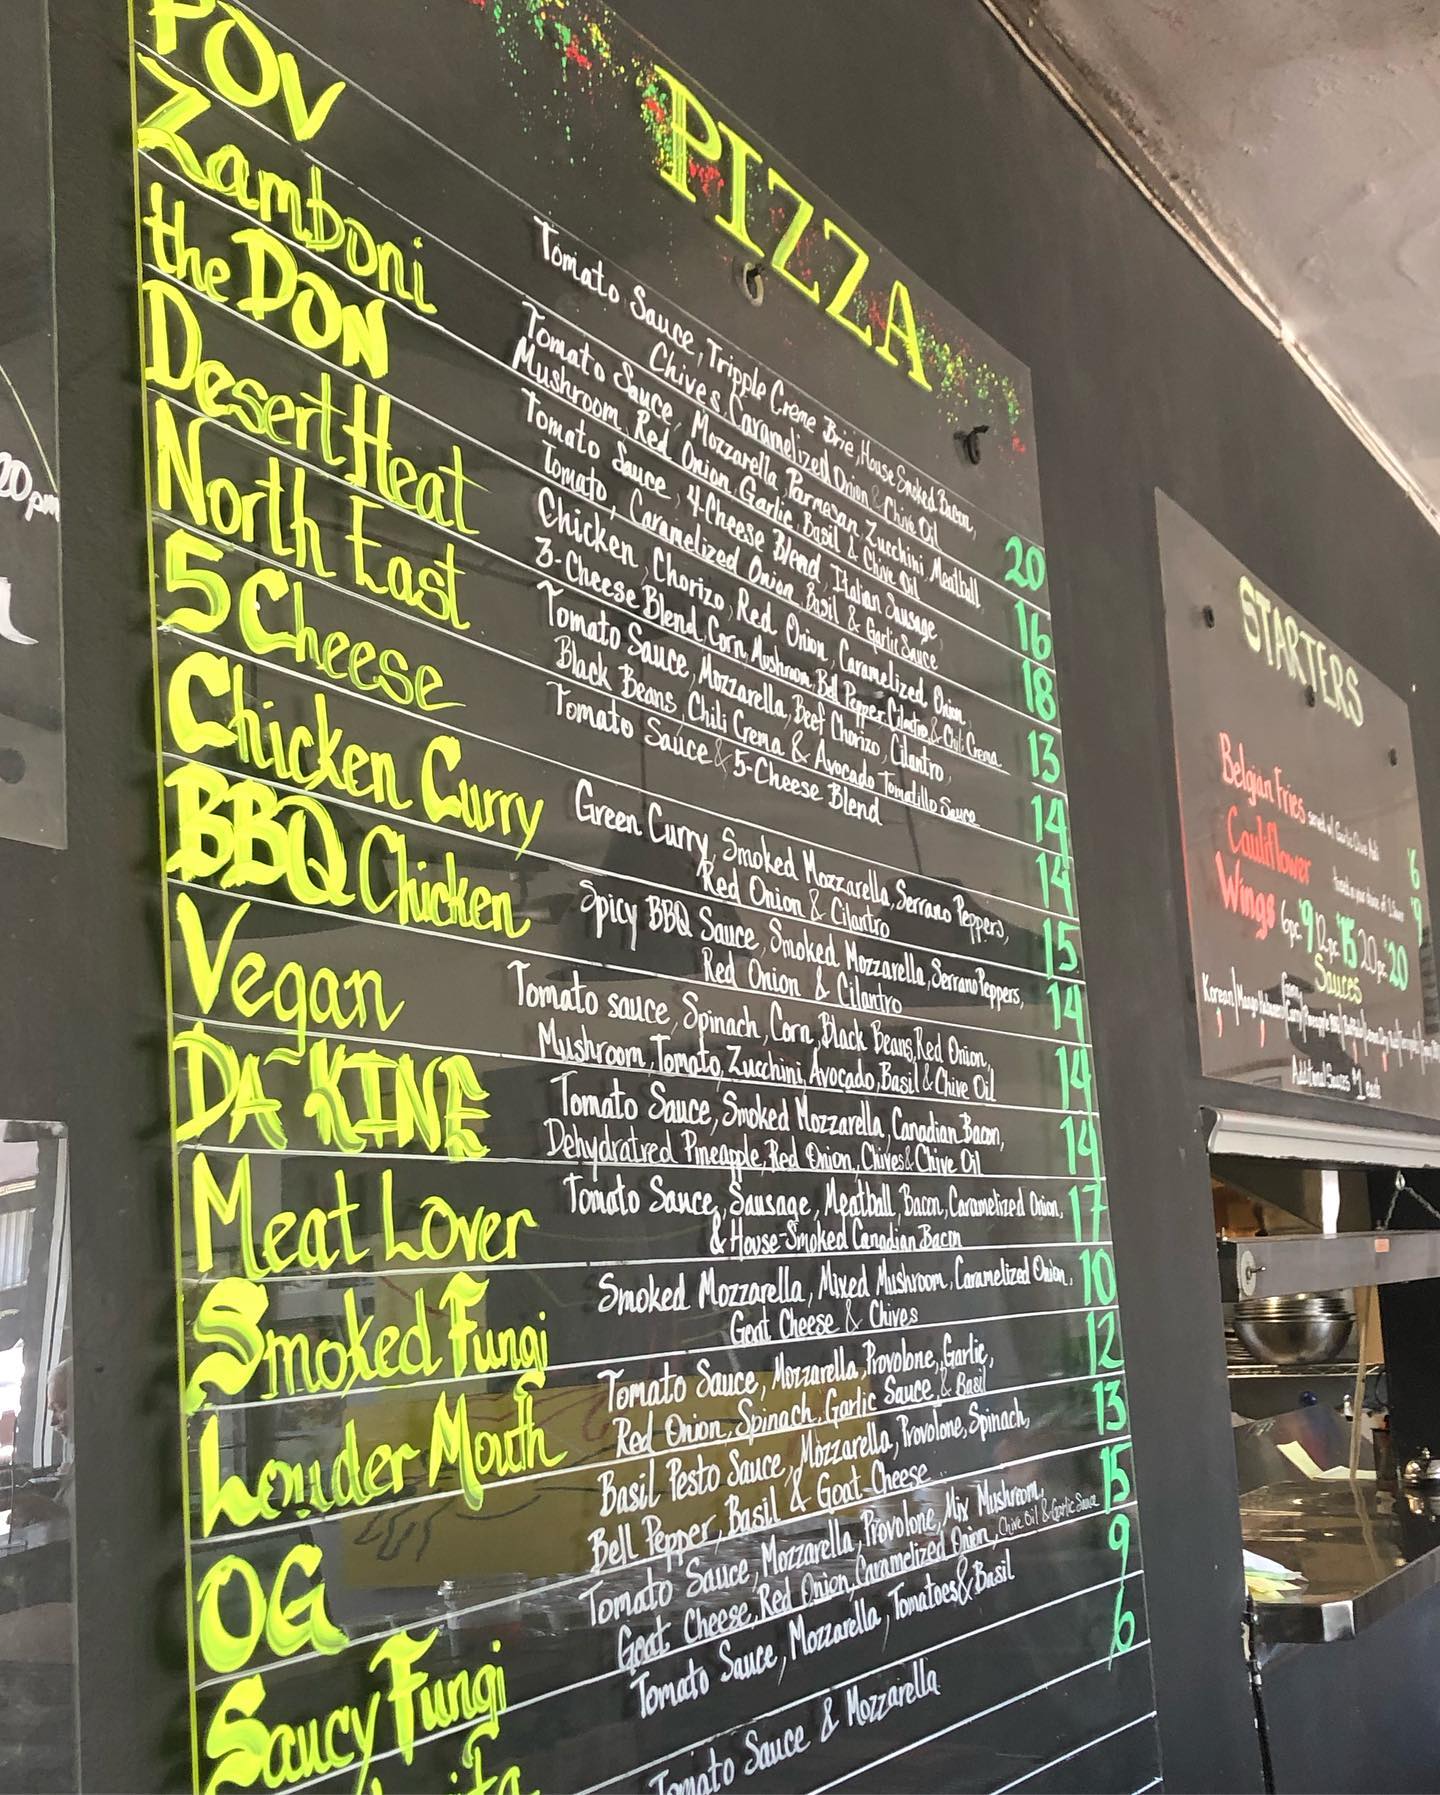 PIZZA
POV
Tomato Sauce, Tripple Creme Brie, House Smoked Bacon,
Chives, Caramelized Onion & Chive Oil
20
Zamboni
Tomato Sauce, Mozzarella, Parmesan, Zucchini, Meatball,
Mushroom, Red Onion, Garlic, Basil & Chive Oil
16
the DON
Tomato Sauce, 4-Cheese Blend, Italian Sausage,
Tomato, Caramelized Onion, Basil & Garlic Sauce
18
Desert Heat
Chicken, Chorizo, Red Onion, Caramelized Onion,
3-Cheese Blend, Corn, Mushroom, Bell Pepper, Cilantro, & Chili Crema
13
North East
Tomato Sauce, Mozzarella, Beef Chorizo, Cilantro,
Black Beans, Chili Crema & Avocado Tomatillo Sauce
14
5 Cheese
Tomato Sauce & 5-Cheese Blend
14
Chicken Curry
Green Curry, Smoked Mozzarella, Serrano Peppers,
Red Onion & Cilantro
15
BBQ Chicken
Spicy BBQ Sauce, Smoked Mozzarella, Serrano Peppers,
Red Onion & Cilantro
14
Vegan
Tomato sauce, Spinach, Corn, Black Beans, Red Onion,
Mushroom, Tomato, Zucchini, Avocado, Basil & Chive Oil
14
DA KINE
Tomato Sauce, Smoked Mozzarella, Canadian Bacon,
Dehydratred Pineapple, Red Onion, Chives & Chive Oil
14
Meat Lover
Tomato Sauce, Sausage, Meatball, Bacon, Caramelized Onion,
& House-Smoked Canadian Bacon
17
Smoked Fungi
Smoked Mozzarella, Mixed Mushroom, Caramelized Onion,
Goat Cheese & Chives
10
Louder Mouth
Tomato Sauce, Mozzarella, Provolone, Garlic,
Red Onion, Spinach, Garlic Sauce, & Basil
12
OG
Basil Pesto Sauce, Mozzarella, Provolone, Spinach,
Bell Pepper, Basil & Goat Cheese
13
Saucy Fungi
Tomato Sauce, Mozzarella, Provolone, Mix Mushroom,
Goat Cheese, Red Onion, Caramelized Onion, Chive Oil & Garlic Sauce
15
Tomato Sauce, Mozzarella, Tomatoes & Basil
9
Tomato Sauce & Mozzarella
6
STARTERS
Belgian Fries served w/ Garlic Chive Aioli 6
Cauliflower 9
Wings 6pc 9 12pc 15 20pc 20
Sauces
Korean | Mango Habanero
Additional Sauces 1 each